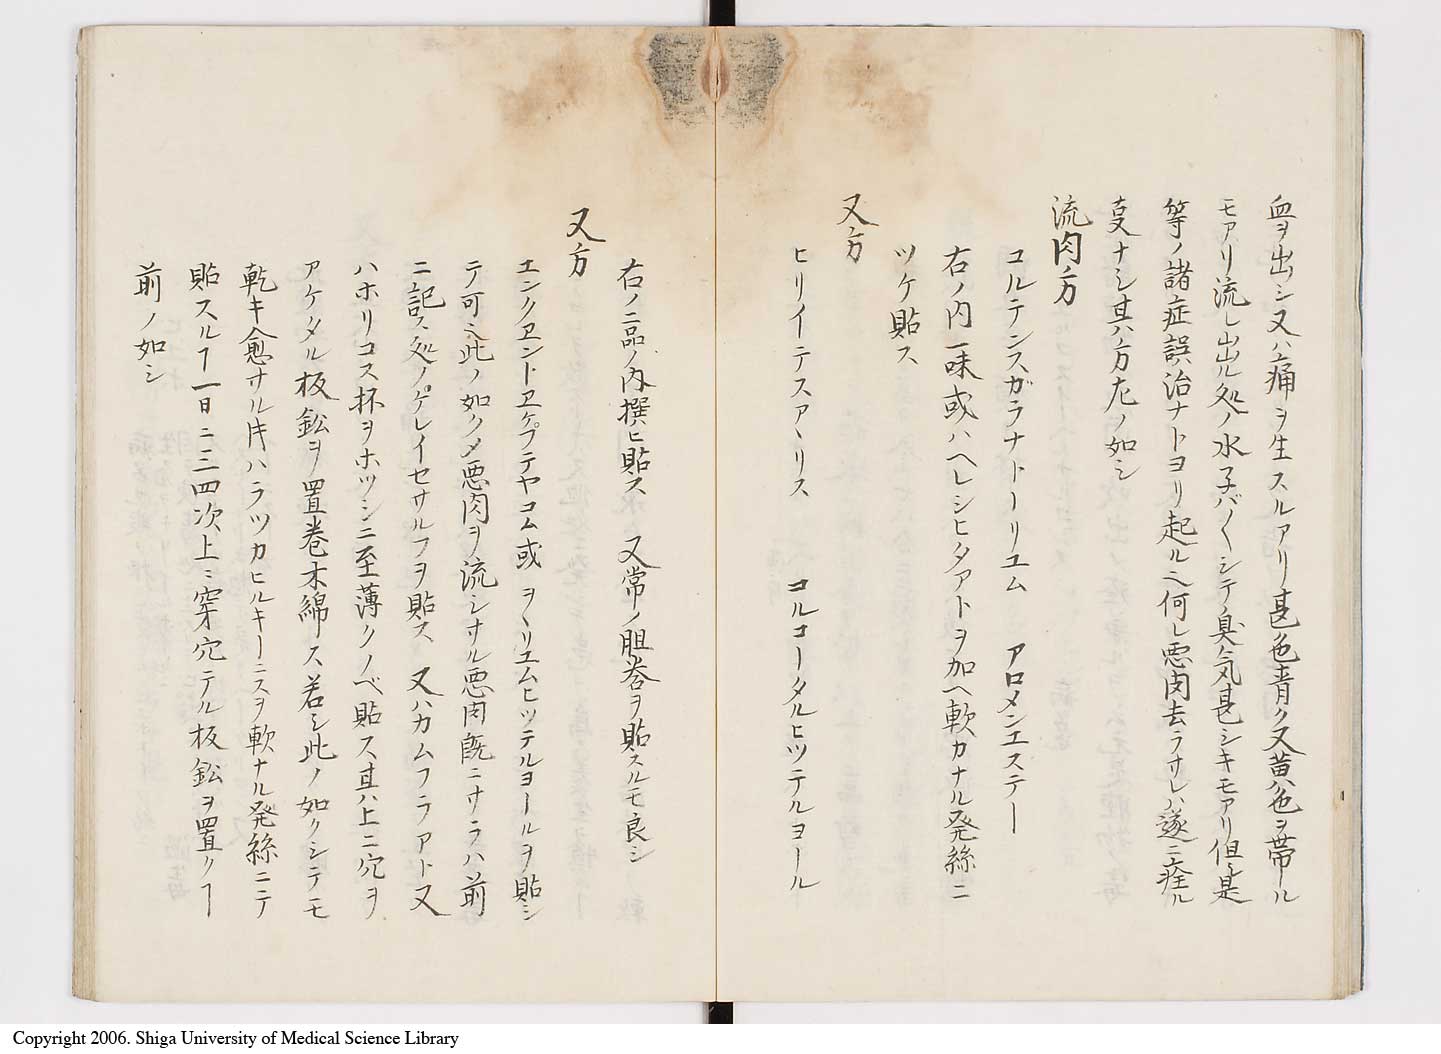 血ヲ出シ又ハ痛ヲ生スルアリ甚色青ク又黄ハ色ヲ帯ル
モアリ流レ出ル処ノ水子バ〱シテ臭気甚シキモアリ但シ是
等ノ諸症誤治ナトヨリ起ル也何レ悪肉去ラサレハ遂ニ痊ル
㕝ナシ其ハ方左ノ如シ
流肉方
コルテンスガラナトーリユム アロメンエステー
右ノ内一味或ハヘレシヒタアトヲ加ヘ軟カナル発絲ニ
ツケ貼ス
又方
ヒリイーテスアヽリス コルコータルヒツテルヨール
右ノ二品ノ内撰ヒ貼ス 又常ノ胆礬ヲ貼スルモ良シ
又方
エンクヱントヱケプテヤコム或 ヲヽリエムヒツテルヨールヲ貼シ
テ可也此ノ如クメ悪肉ヲ流シサル悪肉既ニサラハ前
ニ記ス処ノゲレイセサルフヲ貼ス 又ハカムフラアト又
ハホリコス杯ヲホツシニ至薄クノベ貼ス其ハ上ニ穴ヲ
アケタル板鈆ヲ置巻木綿ス若シ此ノ如クシテモ
乾キ愈サル片ハラツカヒルキーニスヲ軟ナル発絲ニテ
貼スルヿ一日ニ三四次上ニ穿穴テル板鈆ヲ置クヿ
前ノ如シ
Copyright 2006. Shiga University of Medical Science Library